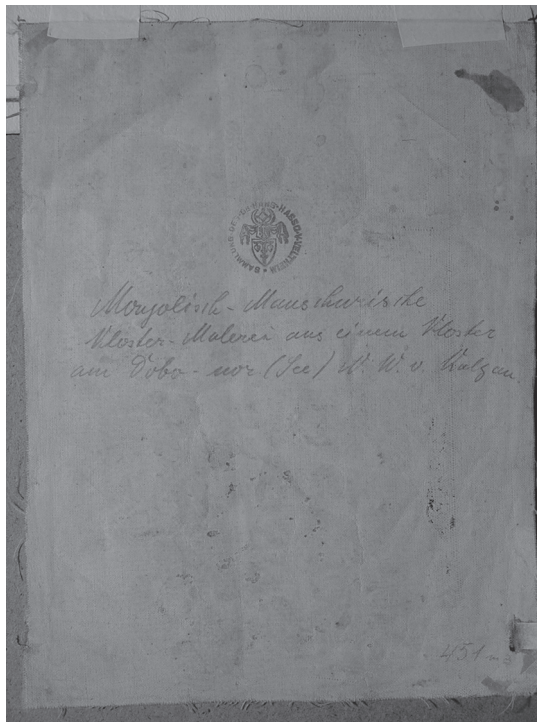 SAMMLUNG DR. HANS-HASSO V. VELTHEIM
Mongolisch-Mandschurische
Kloster-Malerei aus einem Kloster
am Dobo-nor (See) N.W. v. Kalgan.
451